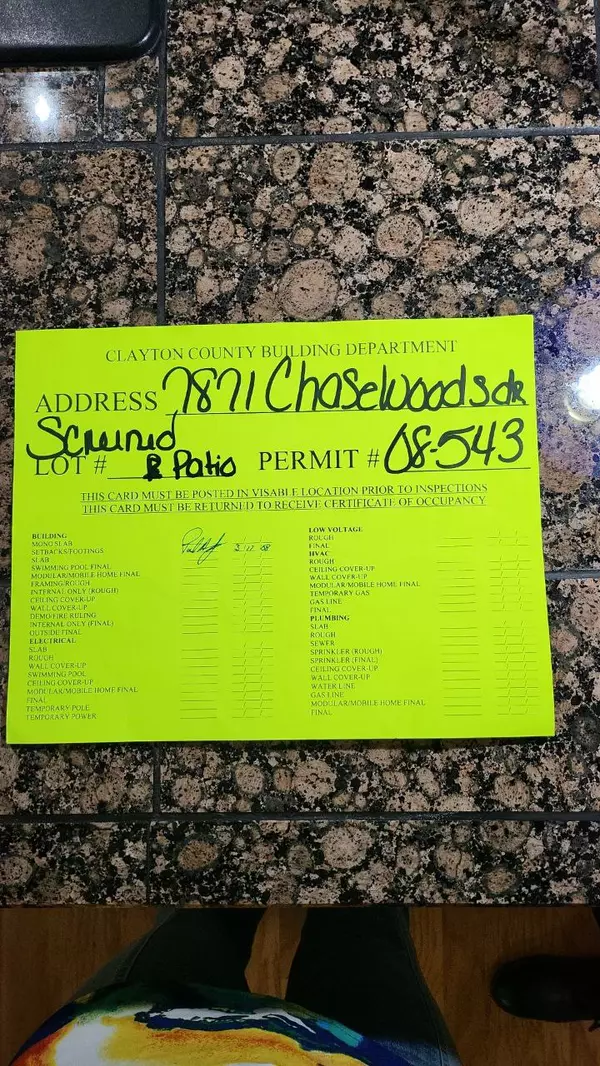 CLAYTON COUNTY BUILDING DEPARTMENT
ADDRESS 7871 Chasewoods dr
Screened
LOT # Patio PERMIT # 08-543
THIS CARD MUST BE POSTED IN VISABLE LOCATION PRIOR TO INSPECTIONS
THIS CARD MUST BE RETURNED TO RECEIVE CERTIFICATE OF OCCUPANCY
BUILDING
MONO SLAB
SETBACKS/FOOTINGS
SLAB
SWIMMING POOL FINAL
MODULAR/MOBILE HOME FINAL
FRAMING/ROUGH
INTERNAL ONLY (ROUGH)
CEILING COVER-UP
WALL COVER-UP
DEMO/FIRE RULING
INTERNAL ONLY (FINAL)
OUTSIDE FINAL
ELECTRICAL
SLAB
ROUGH
WALL COVER-UP
SWIMMING POOL
CEILING COVER-UP
MODULAR/MOBILE HOME FINAL
FINAL
TEMPORARY POLE
TEMPORARY POWER
LOW VOLTAGE
ROUGH
FINAL
HVAC
ROUGH
CEILING COVER-UP
WALL COVER-UP
MODULAR/MOBILE HOME FINAL
TEMPORARY GAS
GAS LINE
FINAL
PLUMBING
SLAB
ROUGH
SEWER
SPRINKLER (ROUGH)
SPRINKLER (FINAL)
CEILING COVER-UP
WALL COVER-UP
WATER LINE
GAS LINE
MODULAR/MOBILE HOME FINAL
FINAL